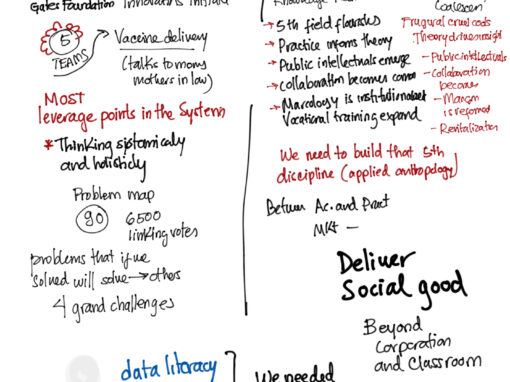 Gates Foundation
5
TEAMS
Vaccine delivery
(talks to moms
mothers in law)
MOST
leverage points in the System
* Thinking systemicaly
and holisticly
Problem map
90
6500
linking votes
problems that if we
solved will solve → others
4 grand challenges
data literacy
→ 5th field flourishes
→ Practice informs theory
→ Public intellectuals emerge
→ collaboration becomes
Vocational training expand
- Public intellectuals
- Collaboration
becomes
- Margin
is reformed
- Revitalization
We need to build that 5th
discipline (applied anthropology)
Between Ac. and Pract
Mkt —
Deliver
Social good
Beyond
Corporation
and Classroom
We needed